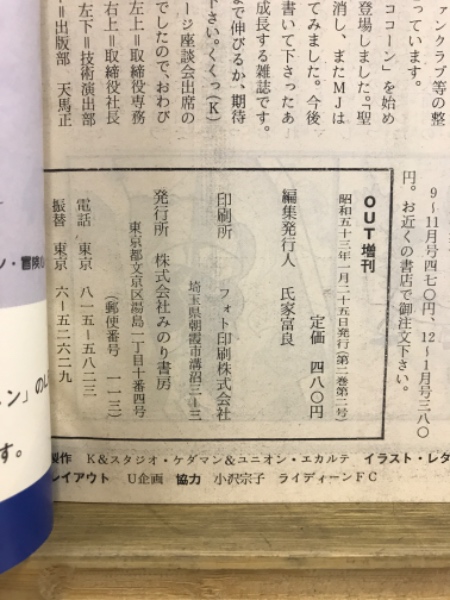 ァンクラブ等の整
っています。
ココーン」を始め
登場しました。『聖
消し、またMJは
てみました。今後
書いて下さったあ
成長する雑誌です。
まで伸びるか、期待
下さい。くくっ(K)
ージ座談会出席の
でしたので、おわび
左上=取締役専務
右上=取締役社長
左下=技術演出部
下=出版部 天馬正
9〜11月号四七〇円、12〜1月号三八〇
円。お近くの書店で御注文下さい。
OUT増刊
昭和五十三年一月二十五日発行(第二巻第二号)
定価 四八〇円
編集発行人 氏家富良
印刷所 フォト印刷株式会社
埼玉県朝霞市溝沼三ー三
発行所 株式会社みのり書房
東京都文京区湯島一丁目十番四号
(郵便番号 一一三)
電話 東京 八一五ー五八二三
振替 東京 六ー五二六二九
製作 K&スタジオ・ケダマン&ユニオン・エカルテ イラスト・レタ
レイアウト U企画 協力 小沢宗子 ライディーンFC
ン・冒険
ン」の
す。